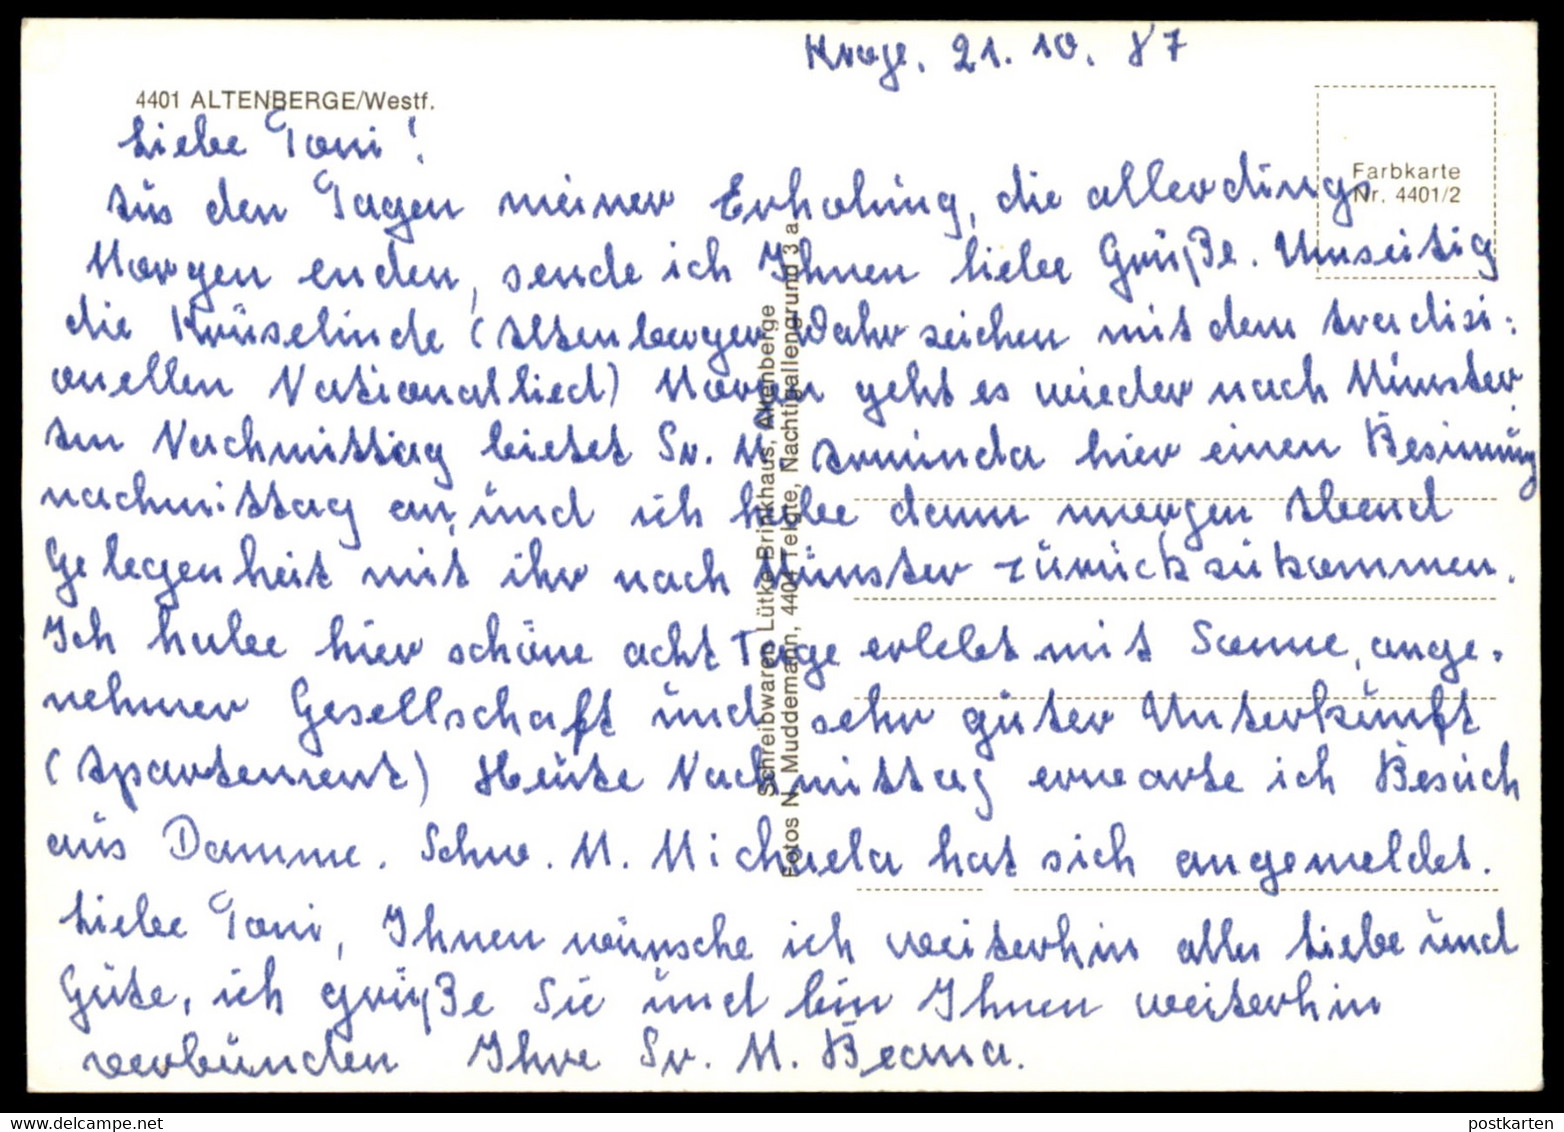 Kroge, 21. 10. 87
4401 ALTENBERGE/Westf.
Farbkarte
Nr. 4401/2
Liebe Toni!
Aus den Tagen meiner Erholung, die allerdings
Morgen enden, sende ich Ihnen liebe Grüße. Umseitig
die Krüselinde (Altenberger Wahrzeichen mit dem tradisi-
onellen Nationallied) Morgen geht es wieder nach Münster
Am Nachmittag bietet Sr. M. Arminda hier einen Besinnung
nachmittag an, und ich habe dann morgen Abend
Gelegenheit mit ihr nach Münster zurückzukommen.
Ich habe hier schöne acht Tage erlebt mit Sonne, ange-
nehmer Gesellschaft und sehr guter Unterkunft
(Apartement) Heute Nachmittag erwarte ich Besuch
aus Damme. Schw. M. Michaela hat sich angemeldet.
Liebe Toni, Ihnen wünsche ich weiterhin alles Liebe und
Gute, ich grüße Sie und bin Ihnen weiterhin
verbunden Ihre Sr. M. Beana.
Schreibwaren Lütke Brinkhaus, Altenberge
Fotos N. Muddemann, 4404 Telgte, Nachtigallengrund 3 a
postkarten